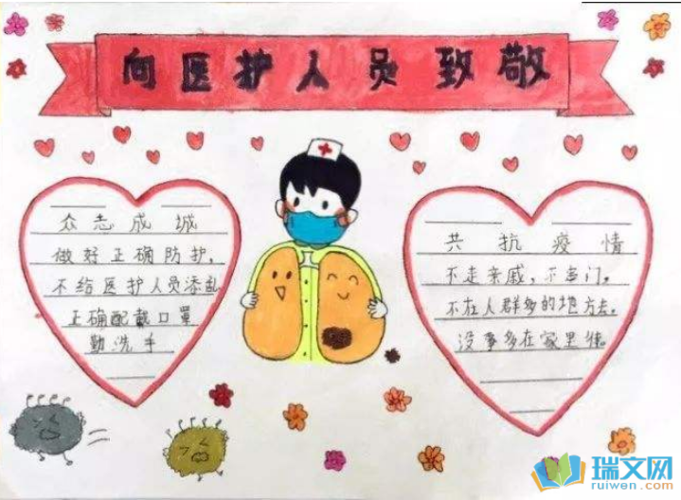 向医护人员致敬
众志成城
做好正确防护,
不给医护人员添乱
正确配戴口罩
勤洗手
共抗疫情
不走亲戚,不串门,
不在人群多的地方去,
没事多在家里
瑞文网
ruiwen.com